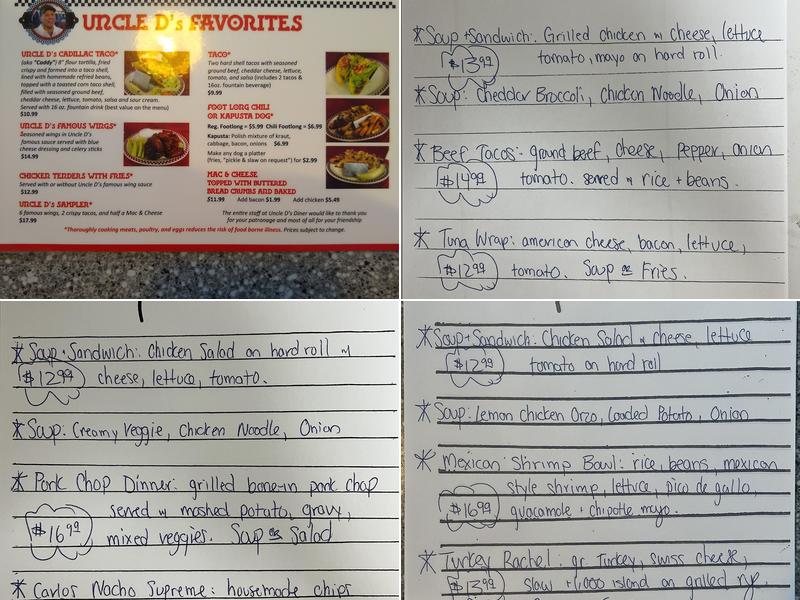 UNCLE D's FAVORITES
UNCLE D's CADILLAC TACO*
(aka "Caddy") 8" flour tortilla, fried
crispy and formed into a taco shell,
lined with homemade refried beans,
topped with a toasted corn taco shell,
filled with seasoned ground beef,
cheddar cheese, lettuce, tomato, salsa and sour cream.
Served with 16 oz. fountain drink (best value on the menu)
$10.99
UNCLE D's FAMOUS WINGS*
Seasoned wings in Uncle D's
famous sauce served with blue
cheese dressing and celery sticks
$14.99
CHICKEN TENDERS WITH FRIES*
Served with or without Uncle D's famous wing sauce
$12.99
UNCLE D's SAMPLER*
6 famous wings, 2 crispy tacos, and half a Mac & Cheese
$17.99
TACO*
Two hard shell tacos with seasoned
ground beef, cheddar cheese, lettuce,
tomato, and salsa (includes 2 tacos &
16oz. fountain beverage)
$9.99
FOOT LONG CHILI
OR KAPUSTA DOG*
Reg. Footlong = $5.99 Chili Footlong = $6.99
Kapusta: Polish mixture of kraut,
cabbage, bacon, onions $6.99
Make any dog a platter
(fries, "pickle & slaw on request") for $2.99
MAC & CHEESE
TOPPED WITH BUTTERED
BREAD CRUMBS AND BAKED
$11.99 Add bacon $1.99 Add chicken $5.49
The entire staff at Uncle D's Diner would like to thank you
for your patronage and most of all for your friendship
*Thoroughly cooking meats, poultry, and eggs reduces the risk of food borne illness. Prices subject to change.
* Soup + Sandwich: Grilled chicken w cheese, lettuce
$13.99 tomato, mayo on hard roll.
* Soup: Cheddar Broccoli, Chicken Noodle, Onion
* Beef Tacos: ground beef, cheese, pepper, onion
$14.99 tomato. served w rice + beans.
* Tuna Wrap: american cheese, bacon, lettuce,
$12.99 tomato. Soup or Fries.
* Soup + Sandwich: Chicken Salad on hard roll w
$12.99 cheese, lettuce, tomato.
* Soup: Creamy Veggie, Chicken Noodle, Onion
* Pork Chop Dinner: grilled bone-in pork chop
served w mashed potato, gravy,
$16.99 mixed veggies. Soup or Salad
* Carlos Nacho Supreme: housemade chips
* Soup + Sandwich: Chicken Salad w cheese, lettuce
$12.99 tomato on hard roll
* Soup: Lemon Chicken Orzo, Loaded Potato, Onion
* Mexican Shrimp Bowl: rice, beans, mexican
style shrimp, lettuce, pico de gallo,
$16.99 guacamole + chipotle mayo.
* Turkey Rachel: gr. Turkey, swiss cheese,
$13.99 slaw + 1,000 island on grilled rye.